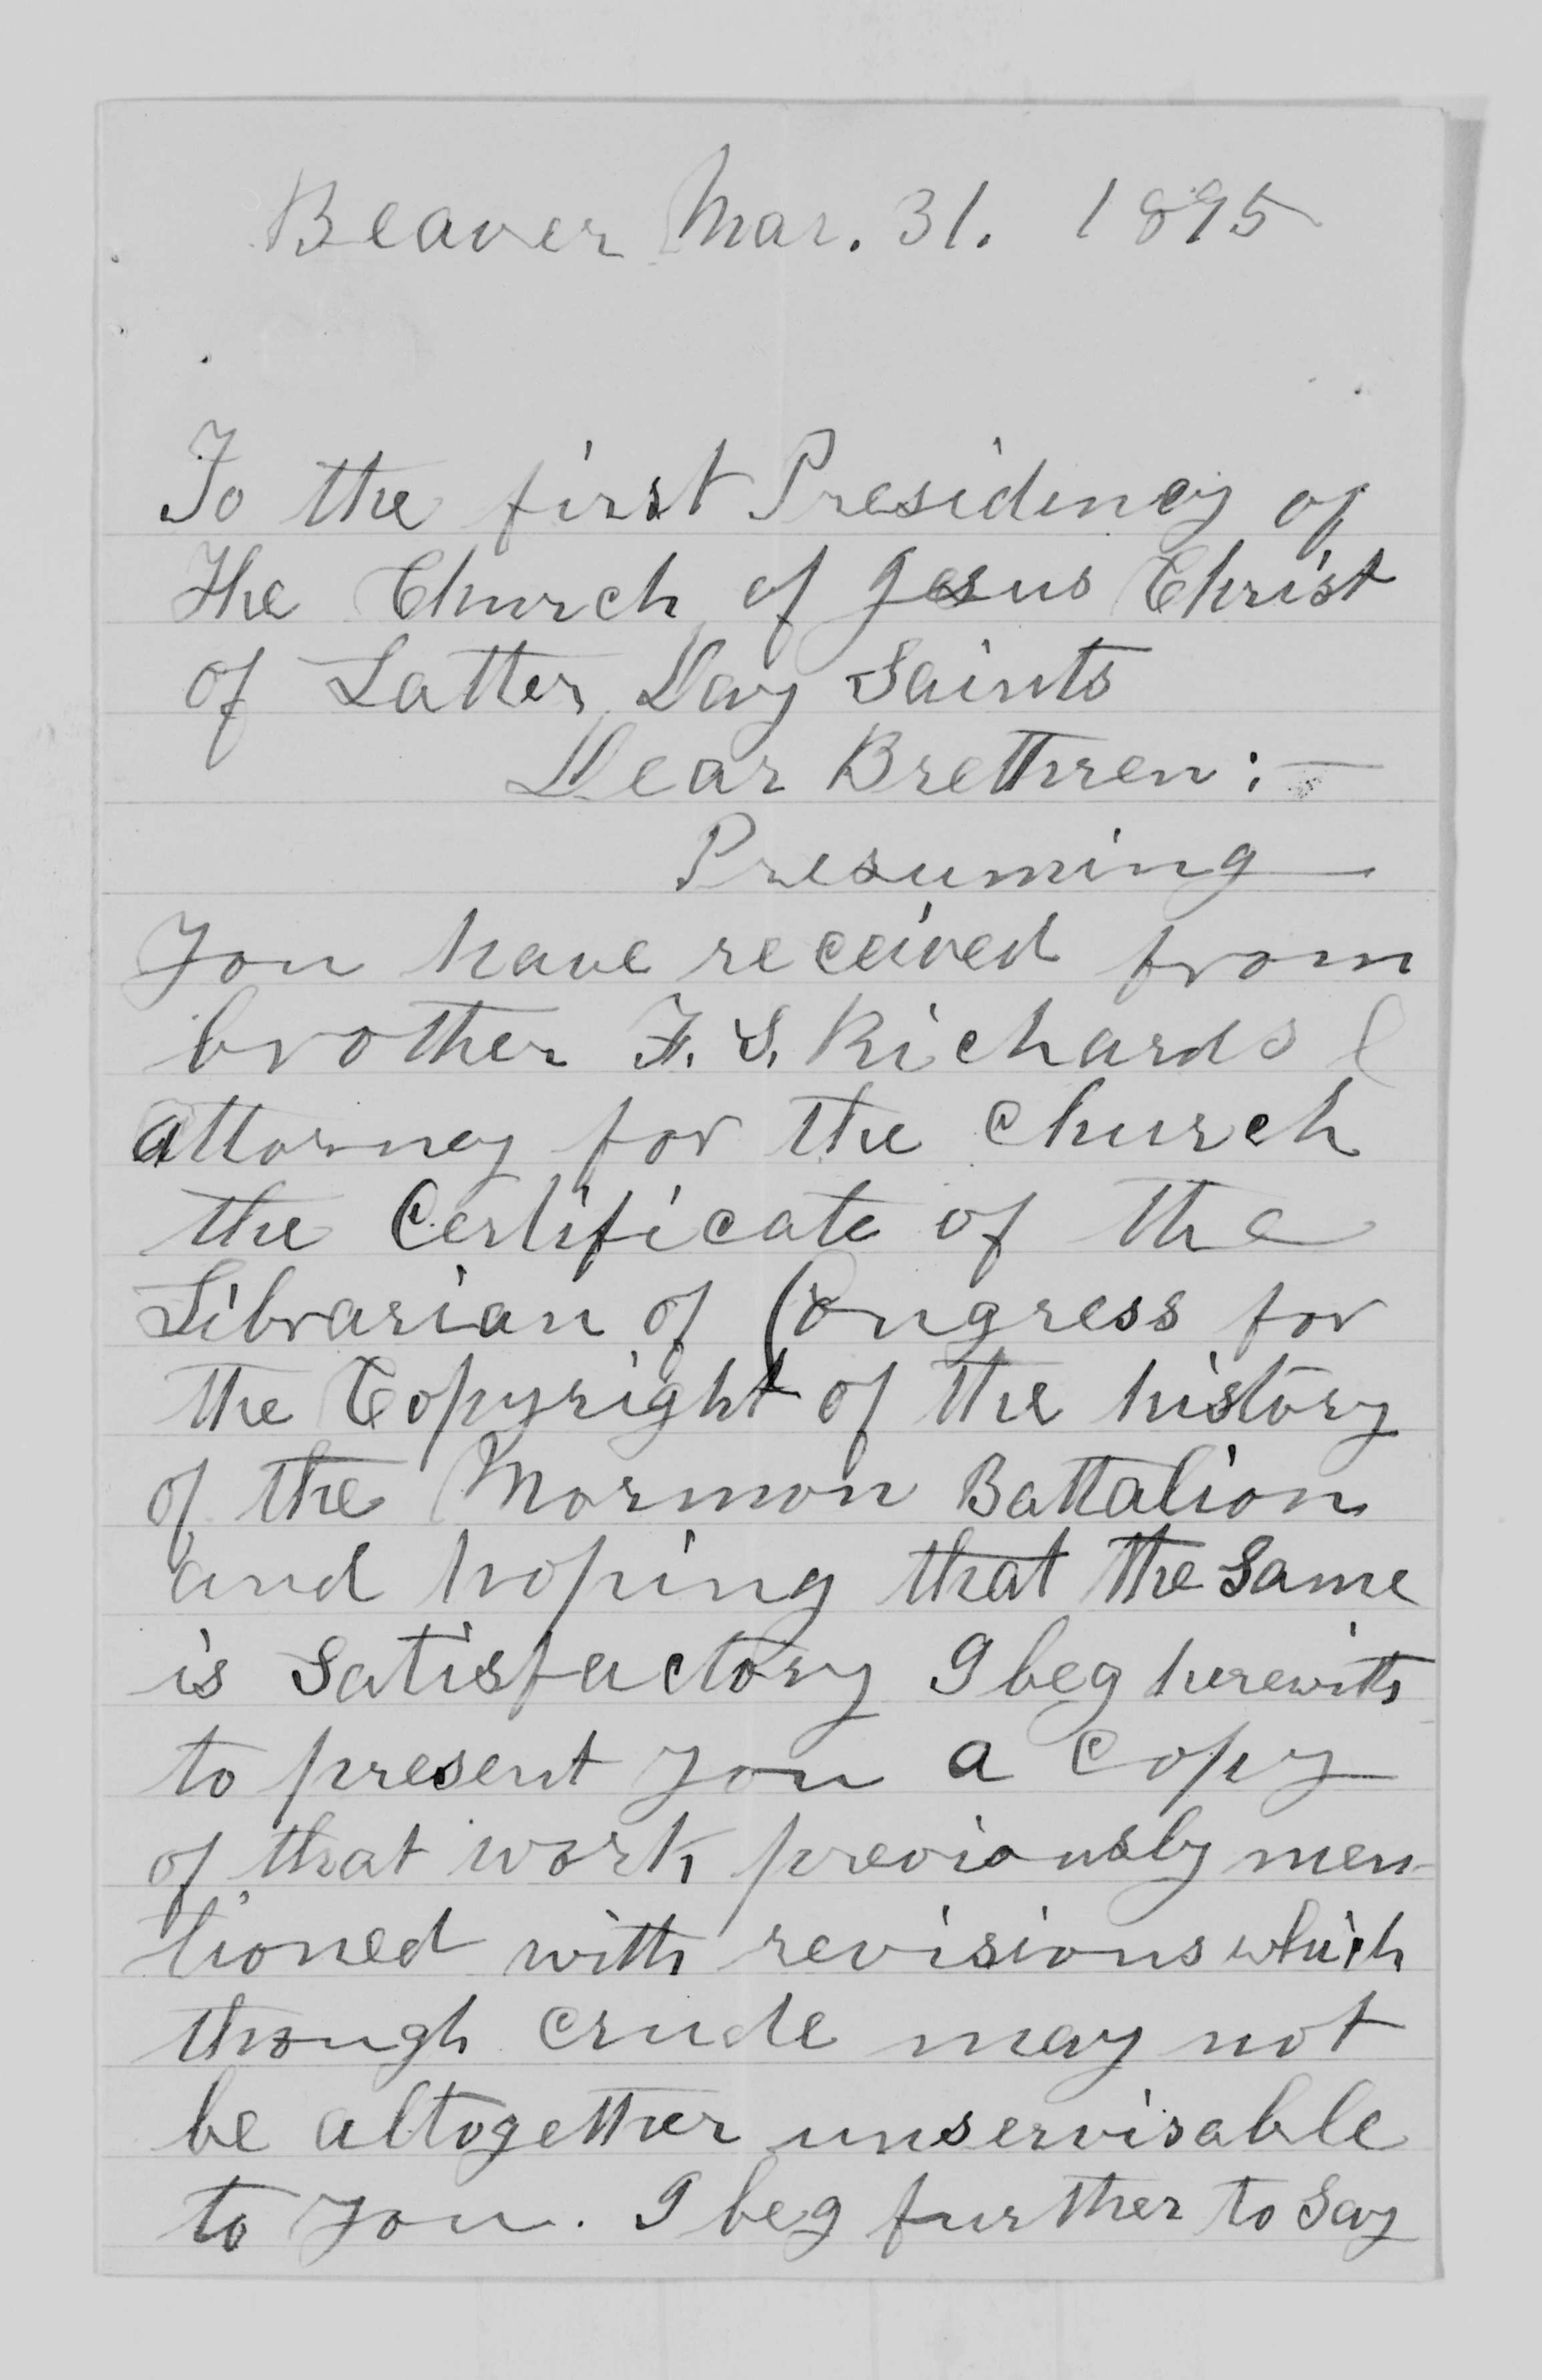 Beaver Mar. 31. 1895
To the first Presidency of
the Church of Jesus Christ
of Latter Day Saints
Dear Brethren: —
Presuming
you have received from
brother F. S. Richards
attorney for the church
the Certificate of the
Librarian of Congress for
the Copyright of the history
of the Mormon Battalion
and hoping that the same
is satisfactory I beg herewith
to present you a copy
of that work previously men-
tioned with revisions which
though crude may not
be altogether unservisable
to you. I beg further to say